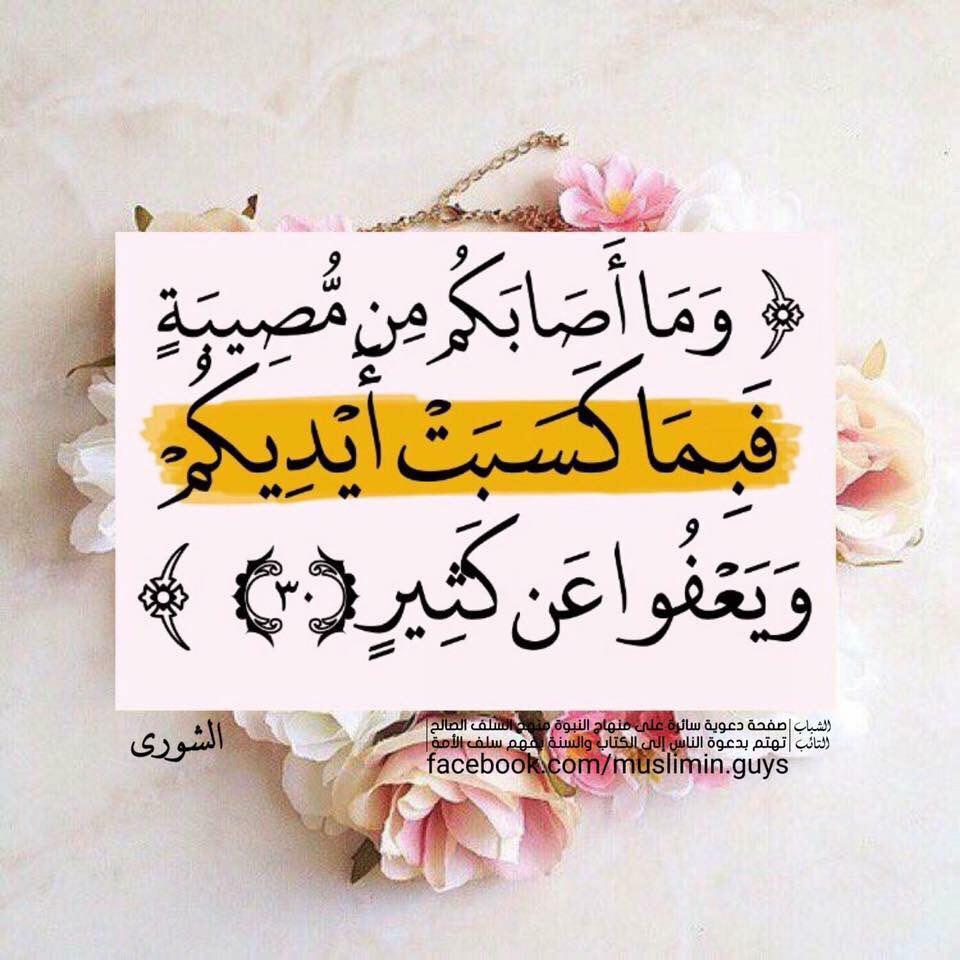 ﴿ وَمَا أَصَابَكُم مِن مُّصِيبَةٍ
فَبِمَا كَسَبَتْ أَيْدِيكُمْ
وَيَعْفُوا عَن كَثِيرٍ (٣٠) ﴾
الشورى
الشباب | صفحة دعوية سائرة على منهاج النبوة منهج السلف الصالح |
التائب | تهتم بدعوة الناس إلى الكتاب والسنة بفهم سلف الأمة |
facebook.com/muslimin.guys